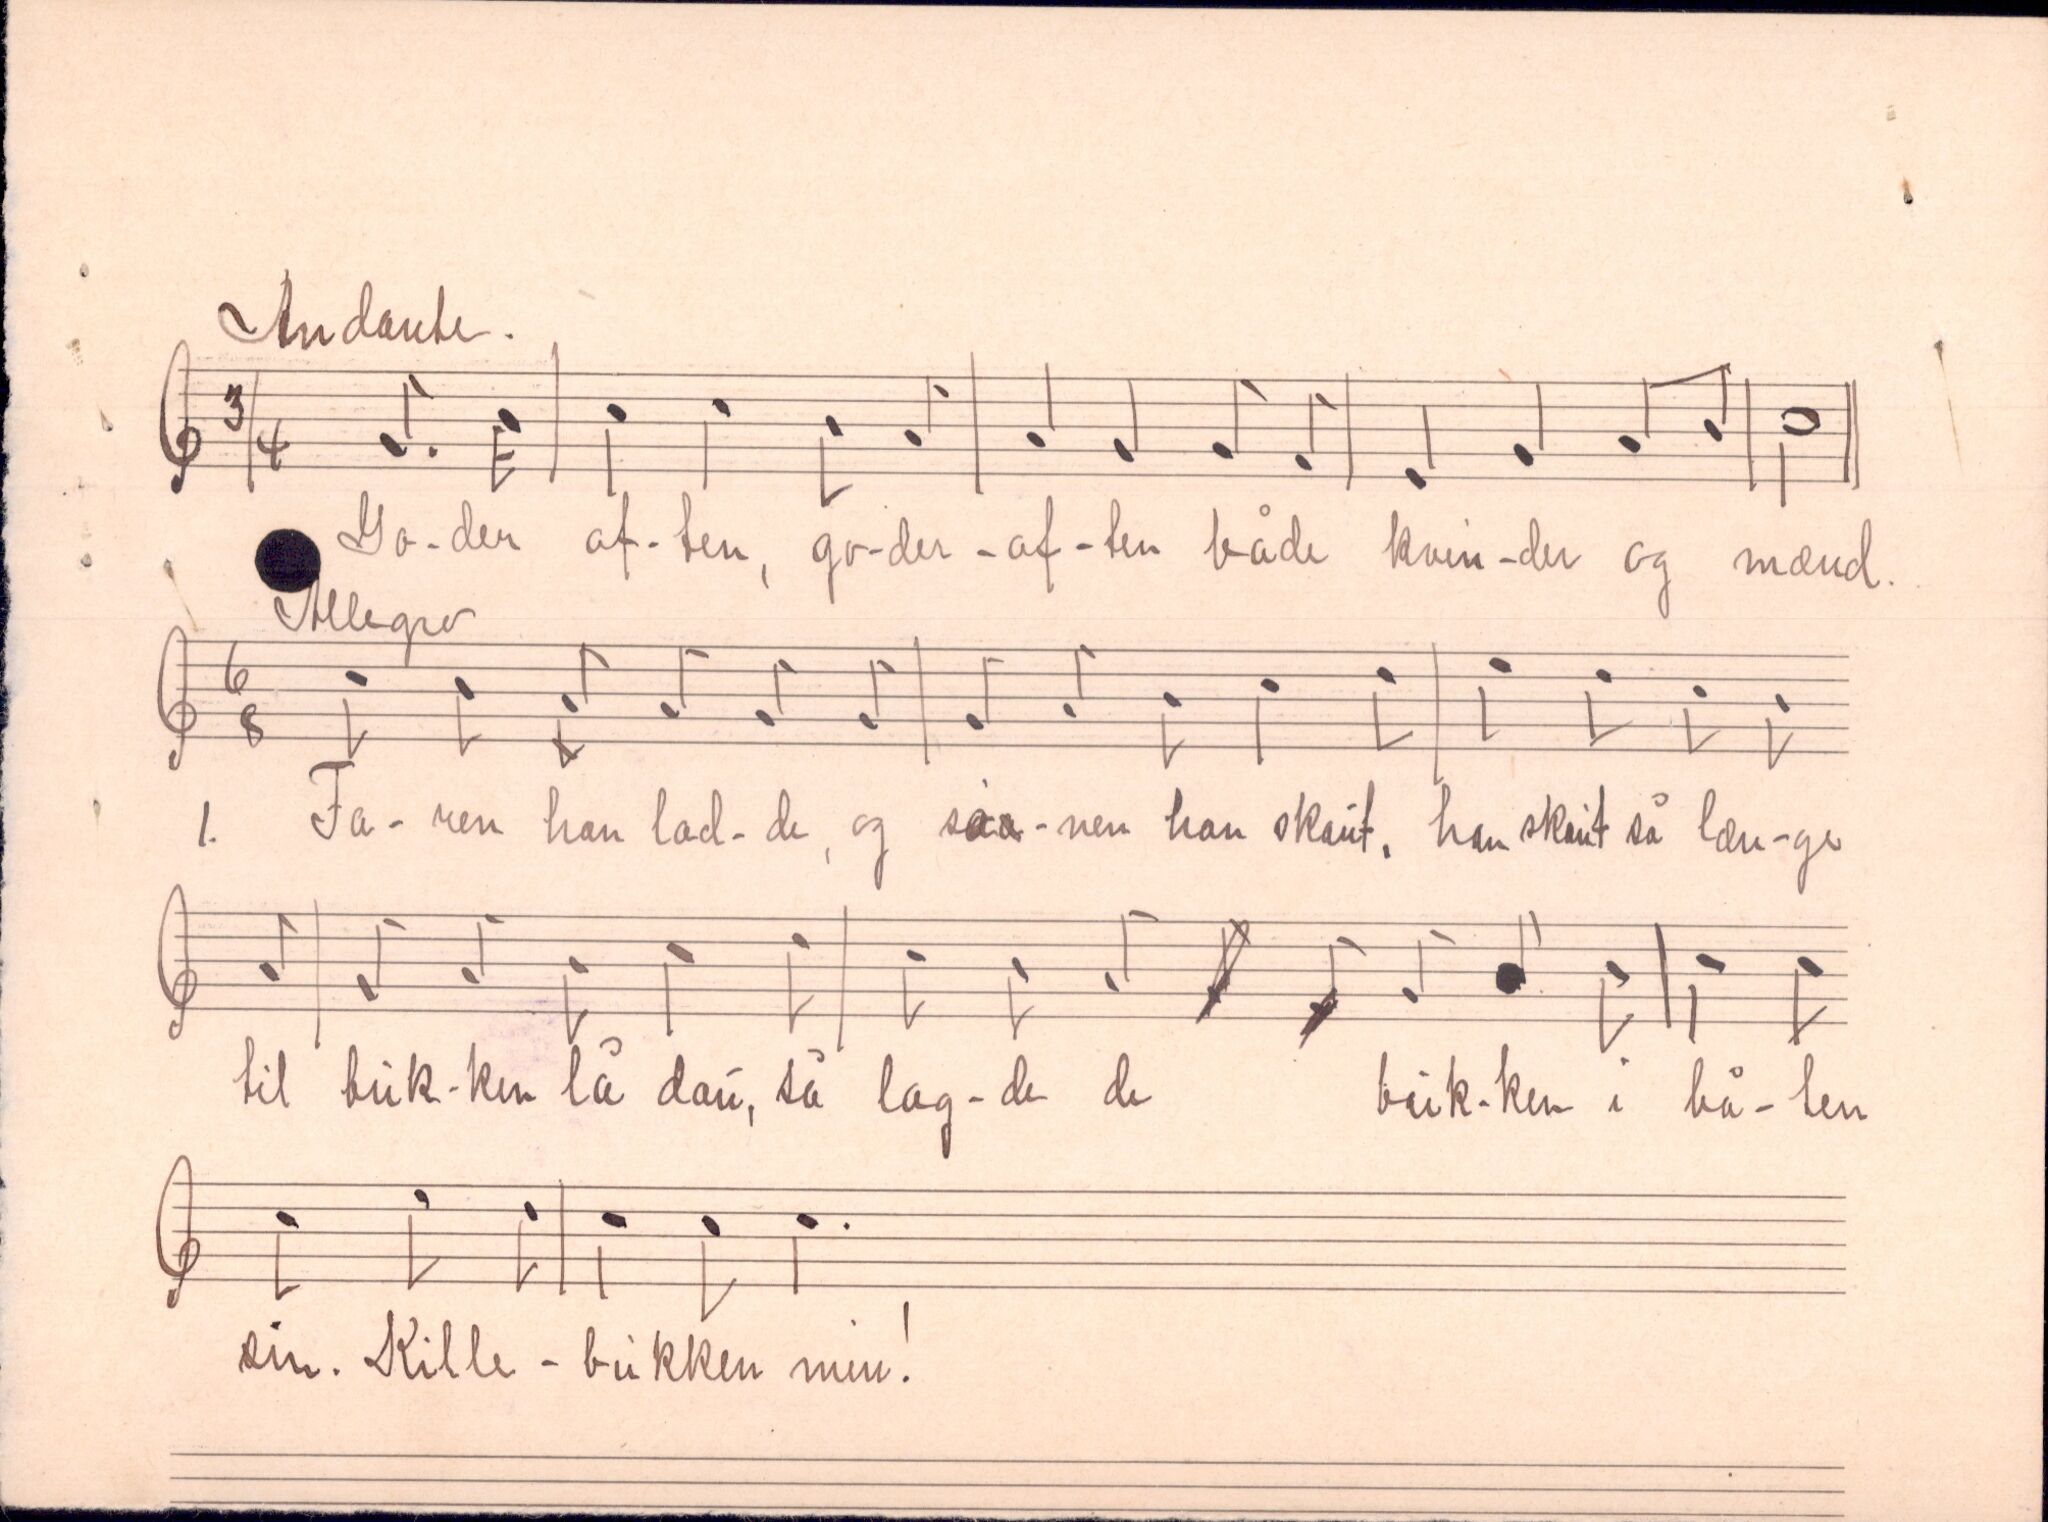 Andante.
3/4
Go-der af-ten, go-der-af-ten både kvin-der og mænd.
Allegro
6 8
1. Fa-ren han lad-de, og søø-nen han skaut, han skaut så læn-ge
til buk-ken lå dau, så lag-de de buk-ken i bå-ten
sin. Kille-bukken min!